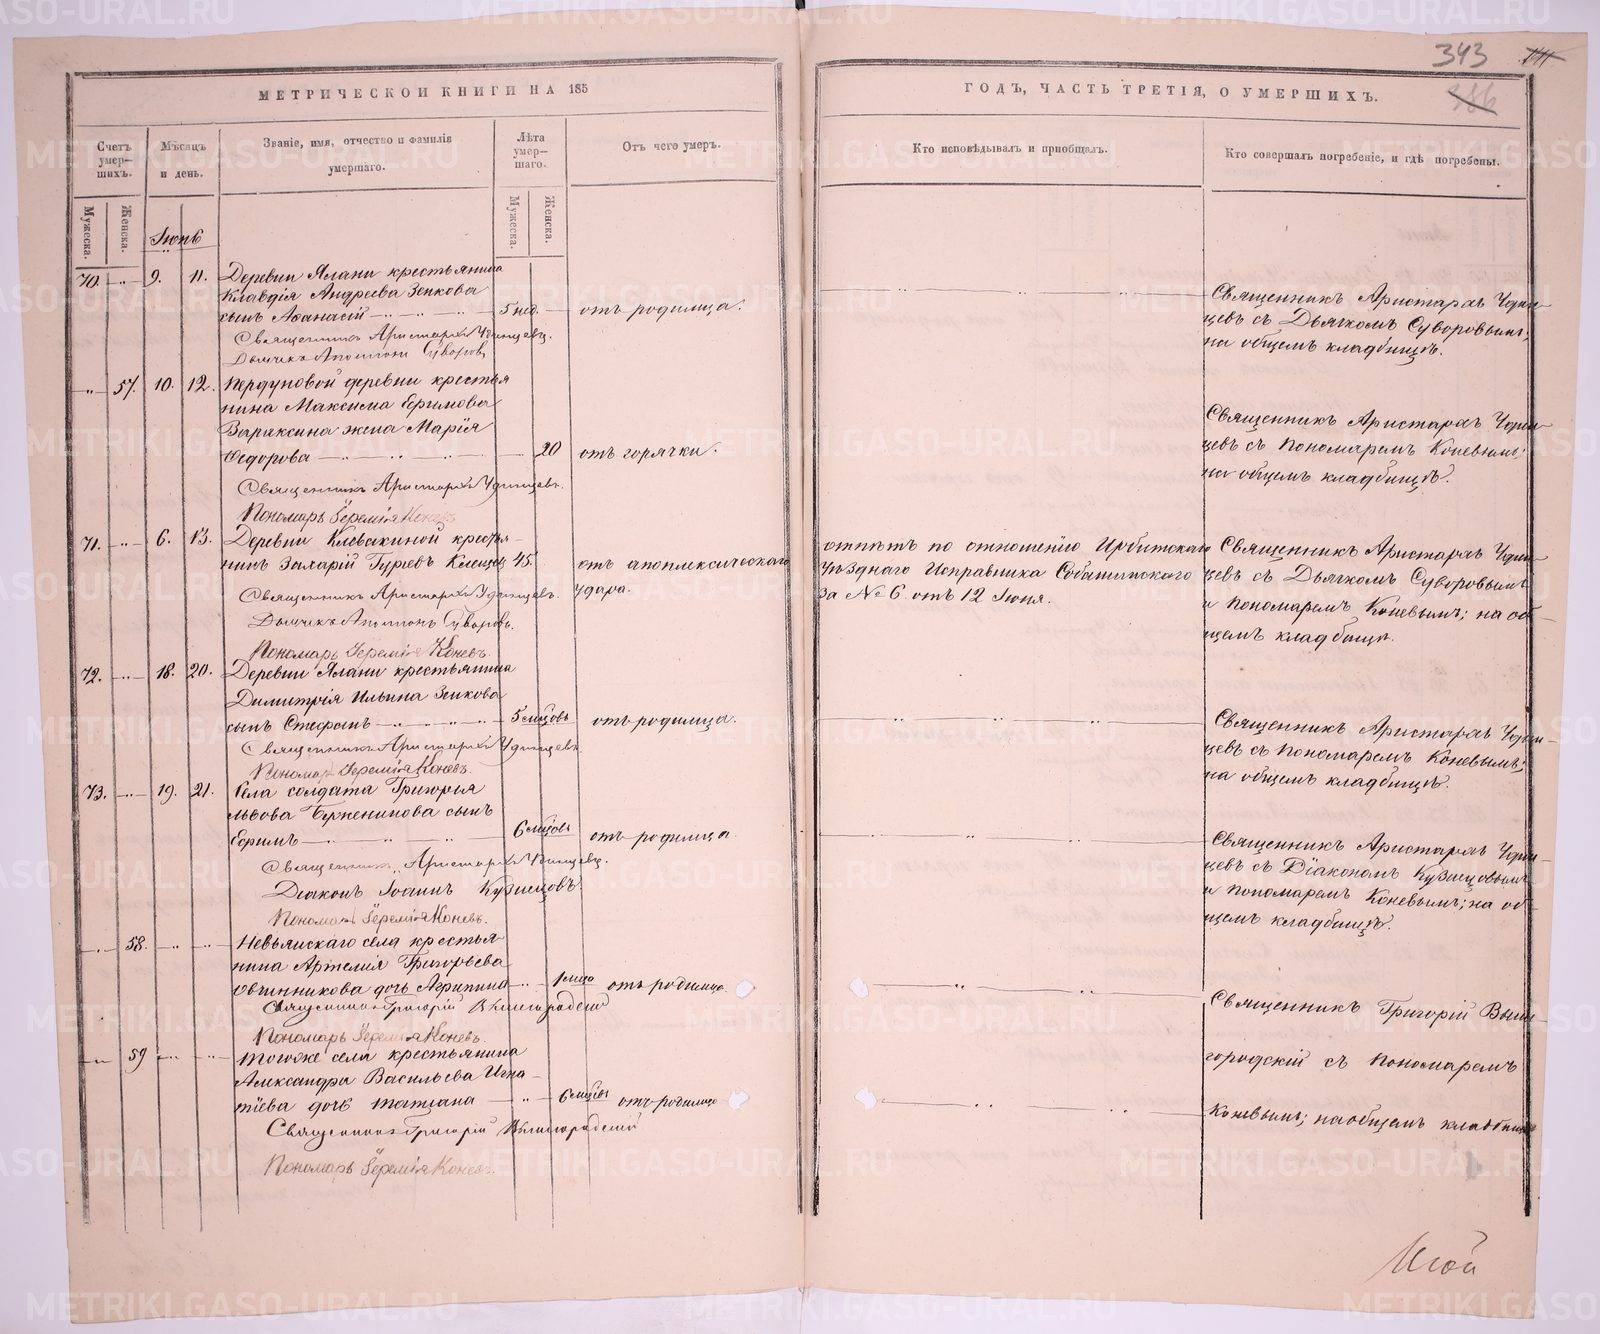 343
386
МЕТРИЧЕСКОЙ КНИГИ НА 185
ГОДЪ, ЧАСТЬ ТРЕТІЯ, О УМЕРШИХЪ.
Счетъ умер-шихъ.
Мужеска.
Женска.
Мѣсяцъ и день.
Званіе, имя, отчество и фамилія
умершаго.
Лѣта умер-шаго.
Мужеска.
Женска.
Отъ чего умеръ.
Кто исповѣдывалъ и пріобщалъ.
Кто совершалъ погребеніе, и гдѣ погребены.
Іюнь
70. 9. 11. Деревни Ялани крестьянина
Клавдія Андреева Зенкова
сынъ Аѳанасій 5 нед. отъ родимца.
Священникъ Аристархъ Удинцевъ.
Дьячекъ Аполлонъ Суворовъ
Священникъ Аристархъ Удин-
цевъ съ Дьячкомъ Суворовымъ;
на общемъ кладбищѣ.
57. 10. 12. Пердуновой деревни крестья
нина Максима Ефимова
Выраксина жена Марія
Ѳедорова 20 отъ горячки.
Священникъ Аристархъ Удинцевъ.
Пономарь Іеремія Коневъ
Священникъ Аристархъ Удин-
цевъ съ Пономаремъ Коневымъ;
на общемъ кладбищѣ.
71. 6. 13. Деревни Клевакиной кресть-
нинъ Захарій Гуріевъ Клещевъ 45. отъ апоплексическаго
удара.
Священникъ Аристархъ Удинцевъ.
Дьячекъ Аполлонъ Суворовъ.
Пономарь Іеремія Коневъ.
отпѣтъ по отношенію Ирбитскаго
Уѣзднаго Исправника
за № 6. отъ 12 Іюня.
Священникъ Аристархъ Удин-
цевъ съ Дьячкомъ Суворовымъ
и Пономаремъ Коневымъ; на об-
щемъ кладбищѣ.
72. 18. 20. Деревни Ялани крестьянина
Димитрія Ильина Зенкова
сынъ Стефанъ 5 мцовъ отъ родимца.
Священникъ Аристархъ Удинцевъ
Пономарь Іеремія Коневъ.
Священникъ Аристархъ Удин-
цевъ съ Пономаремъ Коневымъ;
на общемъ кладбищѣ.
73. 19. 21. Села солдата Григорія
Львова сынъ
Ефимъ 6 мцовъ отъ родимца
Священникъ Аристархъ Удинцевъ.
Діаконъ Іоаннъ Кузнецовъ
Пономарь Іеремія Коневъ.
Священникъ Аристархъ Удин-
цевъ съ Діакономъ Кузнецовымъ
и Пономаремъ Коневымъ; на об-
щемъ кладбищѣ.
58. Невьянскаго села крестья
нина Артемія Григорьева
Овчинникова дочь Агрипина 1 мца отъ родимца.
Священникъ Григорій Вышгородскій
Пономарь Іеремія Коневъ.
59 Тогоже села крестьянина
Александра Васильева Игна-
тіева дочь Татіана 6 мцовъ отъ родимца
Священникъ Григорій Вышгородскій
Пономарь Іеремія Коневъ.
Священникъ Григорій Выш-
городскій съ Пономаремъ
Коневымъ; на общемъ кладбищѣ
METRIKI.GASO-URAL.RU